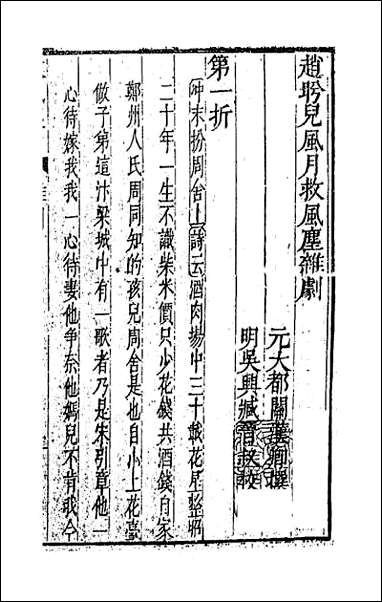 趙盼兒風月救風塵雜劇
元大都關漢卿撰
明吳興臧晉叔校
第一折
冲末扮周舍上詩云酒肉塲中三十載花星整照
二十年一生不識柴米價只少花錢共酒錢自家
鄭州人氏周同知的孩兒周舍是也自小上花臺
做子弟這汴梁城中有一歌者乃是宋引章他一
心待嫁我我一心待娶他争奈他媽兒不肯我今